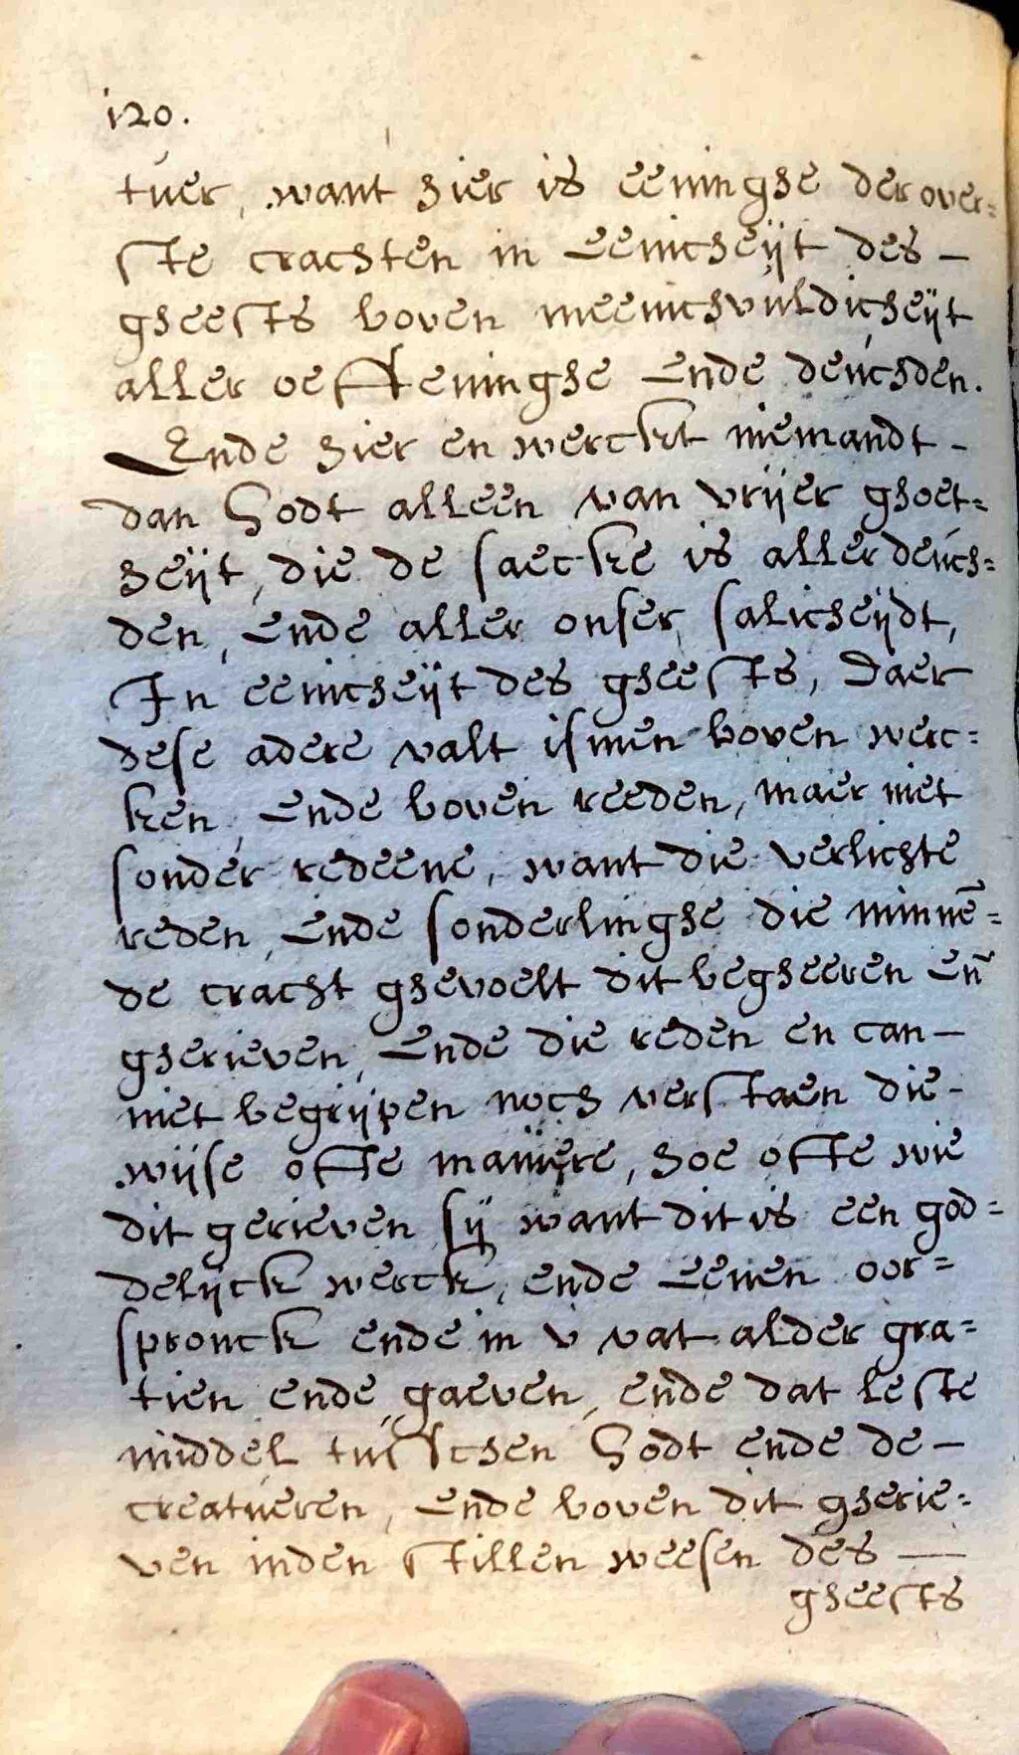 120.
tuer, want hier is eeninghe der over=
ste crachten in Eenicheijt des –
gheests boven meenichvuldicheijt
aller oeffeninghe Ende deuchden.
Ende hier en werckt niemandt –
dan Godt alleen van vrijer ghoet=
heijt, die de saecke is aller deuch=
den, Ende aller onser, salicheijdt,
In eenicheijt des gheests, Daer
dese adere valt ismen boven werc=
ken, Ende boven reeden, maer niet
sonder redeene, want die verlichte
reden, Ende sonderlinghe die minnē=
de cracht ghevoelt dit begheeren Eñ
gherieven, Ende die reden en can –
niet begrijpen noch verstaen die –
wijse ofte maniere, hoe ofte wie
dit gerieven sij want dit is een god=
delijck werck, ende Eenen oor=
spronck ende in v vat alder gra=
tien ende gaeven, ende dat leste
middel tusschen Godt ende de –
creatueren, Ende boven dit gherie=
ven inden stillen weesen des —
gheests